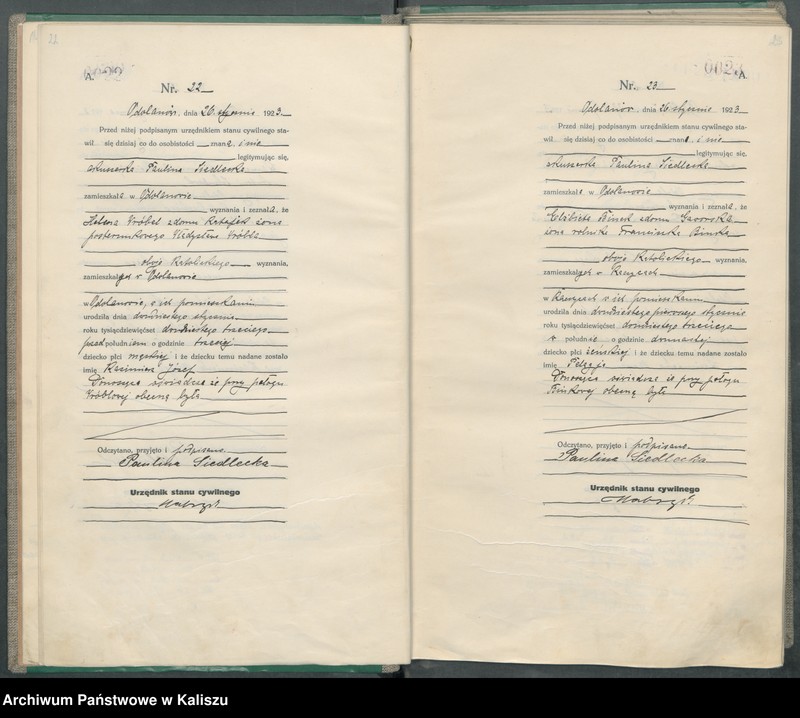 22
A.
Nr. 22
Odolanów, dnia 26 stycznia 1923.
Przed niżej podpisanym urzędnikiem stanu cywilnego sta-
wił się dzisiaj co do osobistości znana i nie
legitymując się,
akuszerka Paulina Siedlecka
zamieszkała w Odolanowie
wyznania i zeznała, że
Helena Wróbel zdomu żona
posterunkowego Władysława Wróbla
oboje katolickiego wyznania,
zamieszkał w Odolanowie
w Odolanowie, w ich pomieszkaniu
urodziła dnia dwudziestego stycznia
roku tysiącdziewięćset dwudziestego trzeciego
przed południem o godzinie trzeciej
dziecko płci męskiej i że dziecku temu nadane zostało
imię Kazimierz Józef
Donosząca oświadcza że przy połogu
Wróblowej obecną była
Odczytano, przyjęto i podpisano
Paulina Siedlecka
Urzędnik stanu cywilnego
23
A.
Nr. 23
Odolanów, dnia 26 stycznia 1923
Przed niżej podpisanym urzędnikiem stanu cywilnego sta-
wił się dzisiaj co do osobistości znana i nie
legitymując się,
akuszerka Paulina Siedlecka
zamieszkała w Odolanowie
wyznania i zeznała, że
Elżbieta zdomu
żona rolnika Franciszka
oboje katolickiego wyznania,
zamieszkał w Raczycach
w Raczycach w ich pomieszkaniu
urodziła dnia dwudziestego pierwszego stycznia
roku tysiącdziewięćset dwudziestego trzeciego
w południe o godzinie dwunastej
dziecko płci żeńskiej i że dziecku temu nadane zostało
imię
Donosząca oświadcza że przy połogu
obecną była
Odczytano, przyjęto i podpisano
Paulina Siedlecka
Urzędnik stanu cywilnego
Archiwum Państwowe w Kaliszu